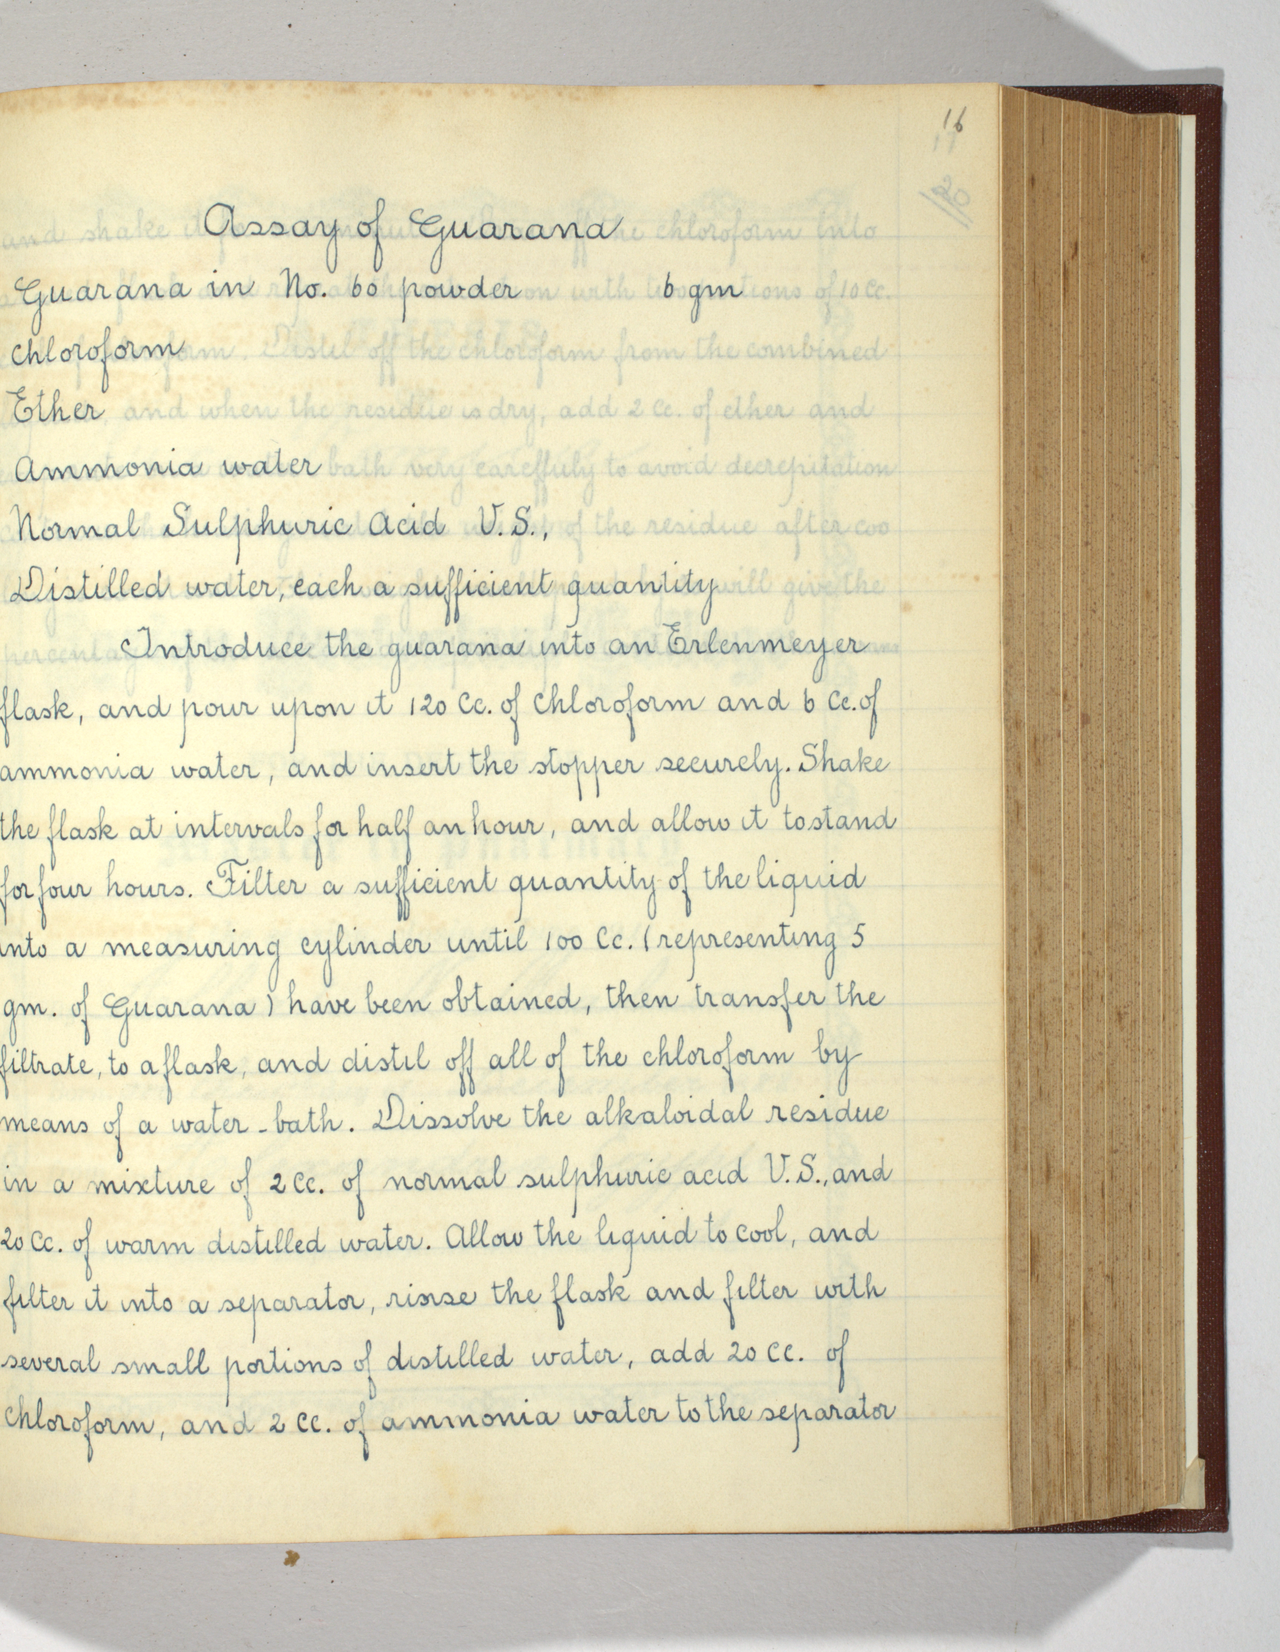 16
Assay of Guarana
Guarana in No. 60 powder 6 gm
Chloroform
Ether
Ammonia water
Normal Sulphuric Acid V.S.,
Distilled water, each a sufficient quantity
Introduce the guarana into an Erlenmeyer
flask, and pour upon it 120 Cc. of Chloroform and 6 Cc. of
ammonia water, and insert the stopper securely. Shake
the flask at intervals for half an hour, and allow it to stand
for four hours. Filter a sufficient quantity of the liquid
into a measuring cylinder until 100 Cc. (representing 5
gm. of Guarana) have been obtained, then transfer the
filtrate, to a flask, and distil off all of the chloroform by
means of a water-bath. Dissolve the alkaloidal residue
in a mixture of 2 Cc. of normal sulphuric acid V.S., and
20 Cc. of warm distilled water. Allow the liquid to cool, and
filter it into a separator, rinse the flask and filter with
several small portions of distilled water, add 20 Cc. of
Chloroform, and 2 Cc. of ammonia water to the separator